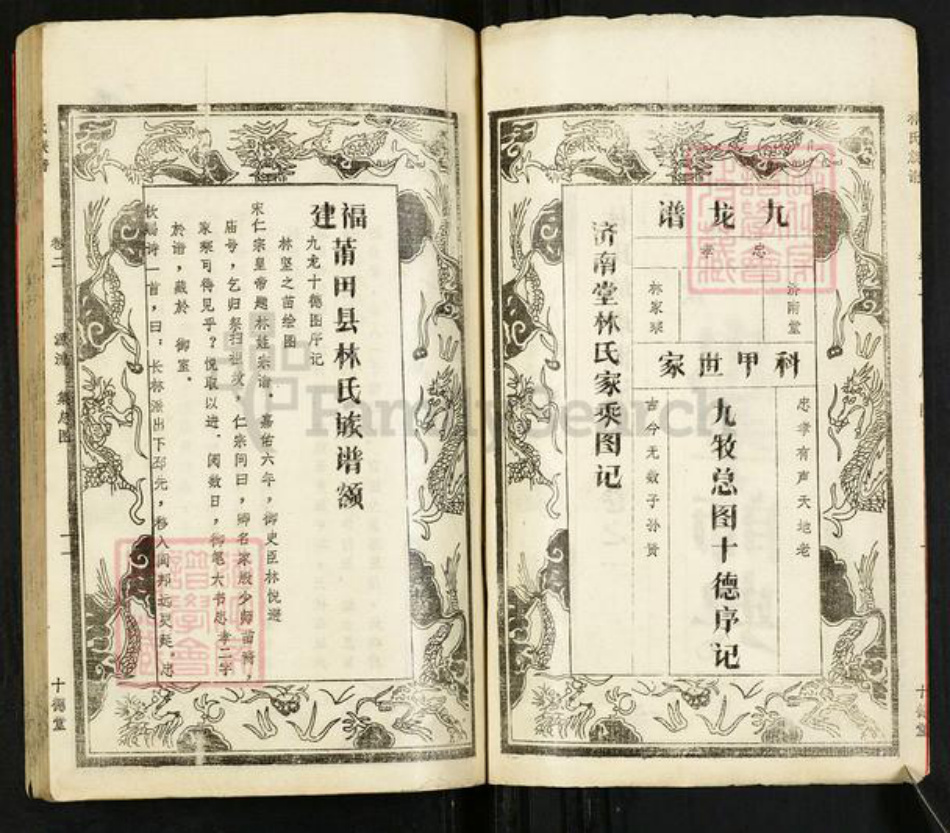 九龙谱
忠孝
济南堂
林家乘
科甲世家
忠孝有声天地老
九牧总图十德序记
古今无数子孙贤
济南堂林氏家乘图记
十德堂
福建莆田县林氏族谱额
九龙十德图序记
林坚之苗绘图
宋仁宗皇帝题林姓宗谱．嘉佑六年，御史臣林悦避
庙号，乞归祭扫祖坟，仁宗问曰，卿名家殷少师苗裔，
家乘可得见乎？悦取以进．阅数日，御笔大书忠孝二字
於谱，藏於 御室．
钦赐诗一首，曰：长林派出下邳先，移入闽邦远更延．忠
卷二
总图
十一
十德堂
FamilySearch